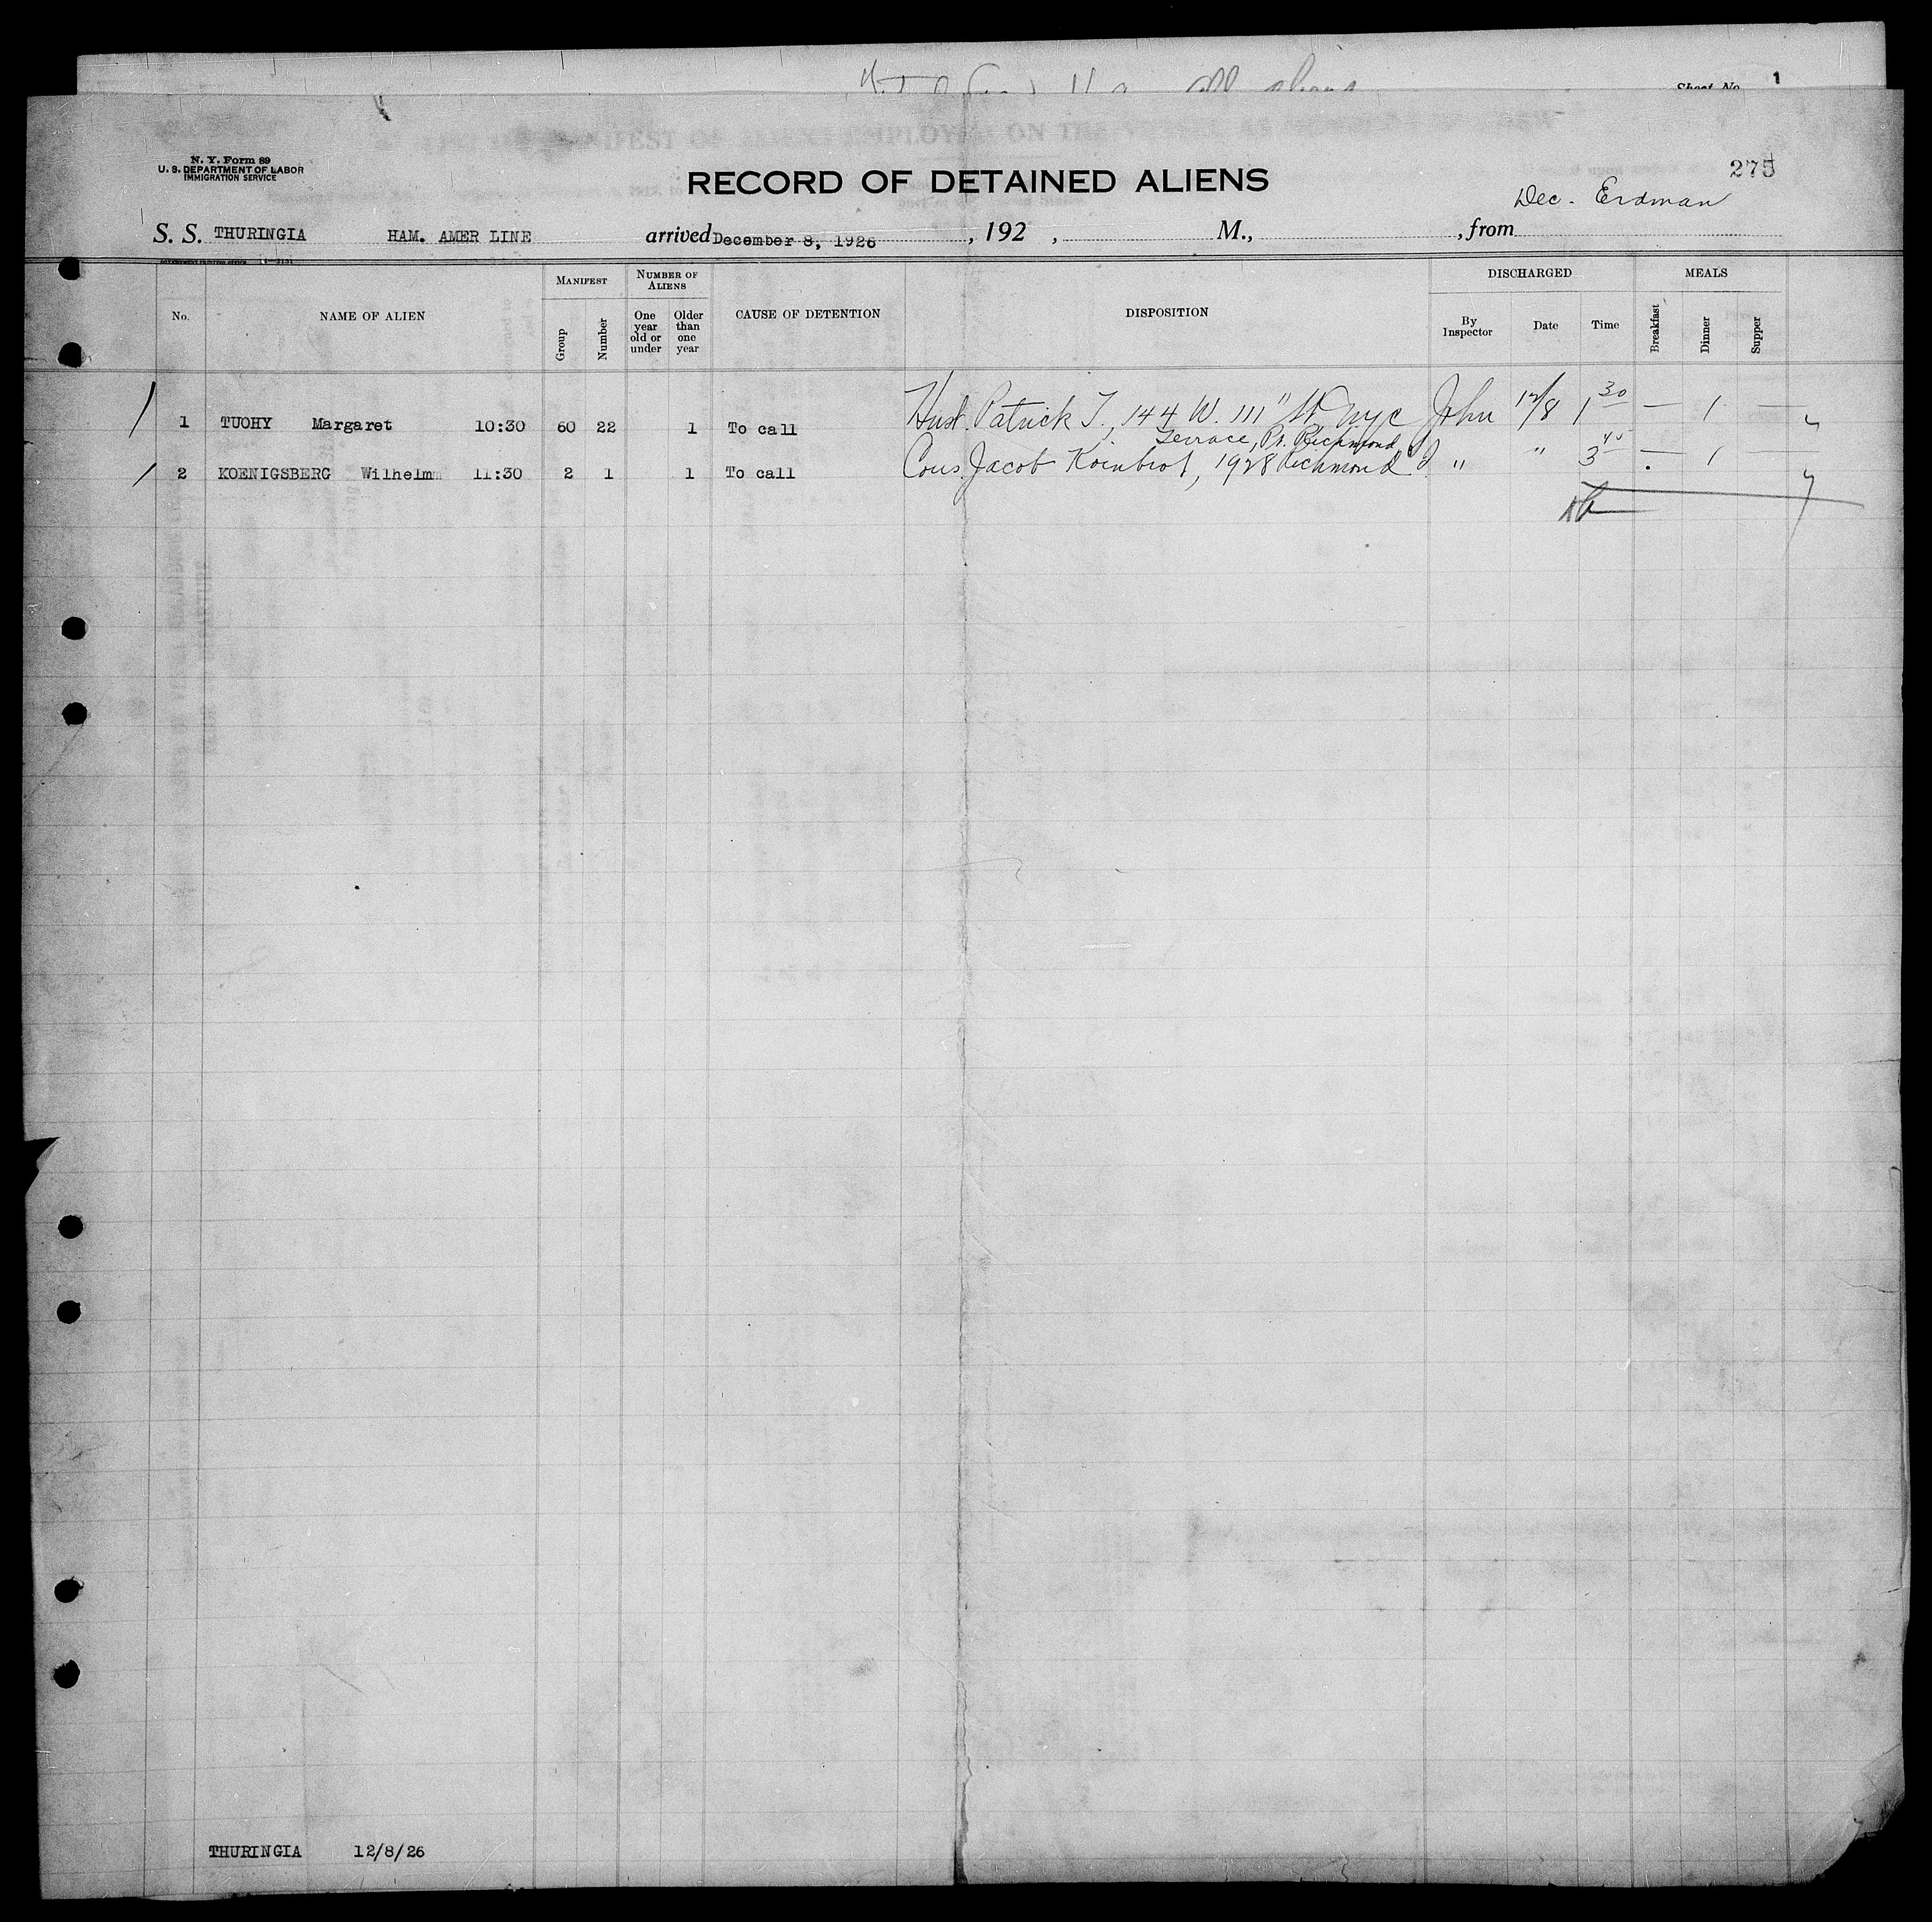 Sheet No. 1
N. Y. Form 89
U. S. DEPARTMENT OF LABOR
IMMIGRATION SERVICE
275
RECORD OF DETAINED ALIENS
Dec. Erdman
S. S. THURINGIA HAM. AMER LINE arrived December 8, 1926, 192 , M., , from
No. NAME OF ALIEN MANIFEST Group Number NUMBER OF ALIENS One year old or under Older than one year CAUSE OF DETENTION DISPOSITION DISCHARGED By Inspector Date Time MEALS Breakfast Dinner Supper
1 TUOHY Margaret 10:30 60 22 1 To call Husb. Patrick T., 144 W. 111" St NYC John 12/8 1 30 — 1 —
Terrace, Pt. Richmond,
2 KOENIGSBERG Wilhelm 11:30 2 1 1 To call Cous. Jacob Koinbrot, 1928 Richmond " " 3 40 — 1 —
THURINGIA 12/8/26